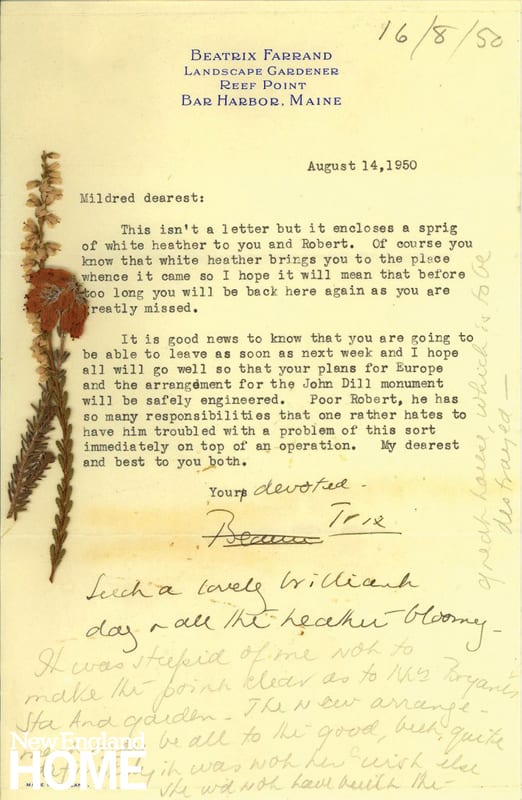 16/8/50
BEATRIX FARRAND
LANDSCAPE GARDENER
REEF POINT
BAR HARBOR, MAINE
August 14,1950
Mildred dearest:
This isn't a letter but it encloses a sprig
of white heather to you and Robert. Of course you
know that white heather brings you to the place
whence it came so I hope it will mean that before
too long you will be back here again as you are
reatly missed.
It is good news to know that you are going to
be able to leave as soon as next week and I hope
all will go well so that your plans for Europe
and the arrangement for the John Dill monument
will be safely engineered. Poor Robert, he has
so many responsibilities that one rather hates to
have him troubled with a problem of this sort
immediately on top of an operation. My dearest
and best to you both.
Your devoted -
Trix
Such a lovely brilliant
day & all the heather blooming -
It was stupid of me not to
make the point clear as to Mrs Bryant's
garden - The new arrange-
be all to the good, but, quite
it was not her wish else
she wd not have built the
great house which is to be
destroyed -
New England
HOME